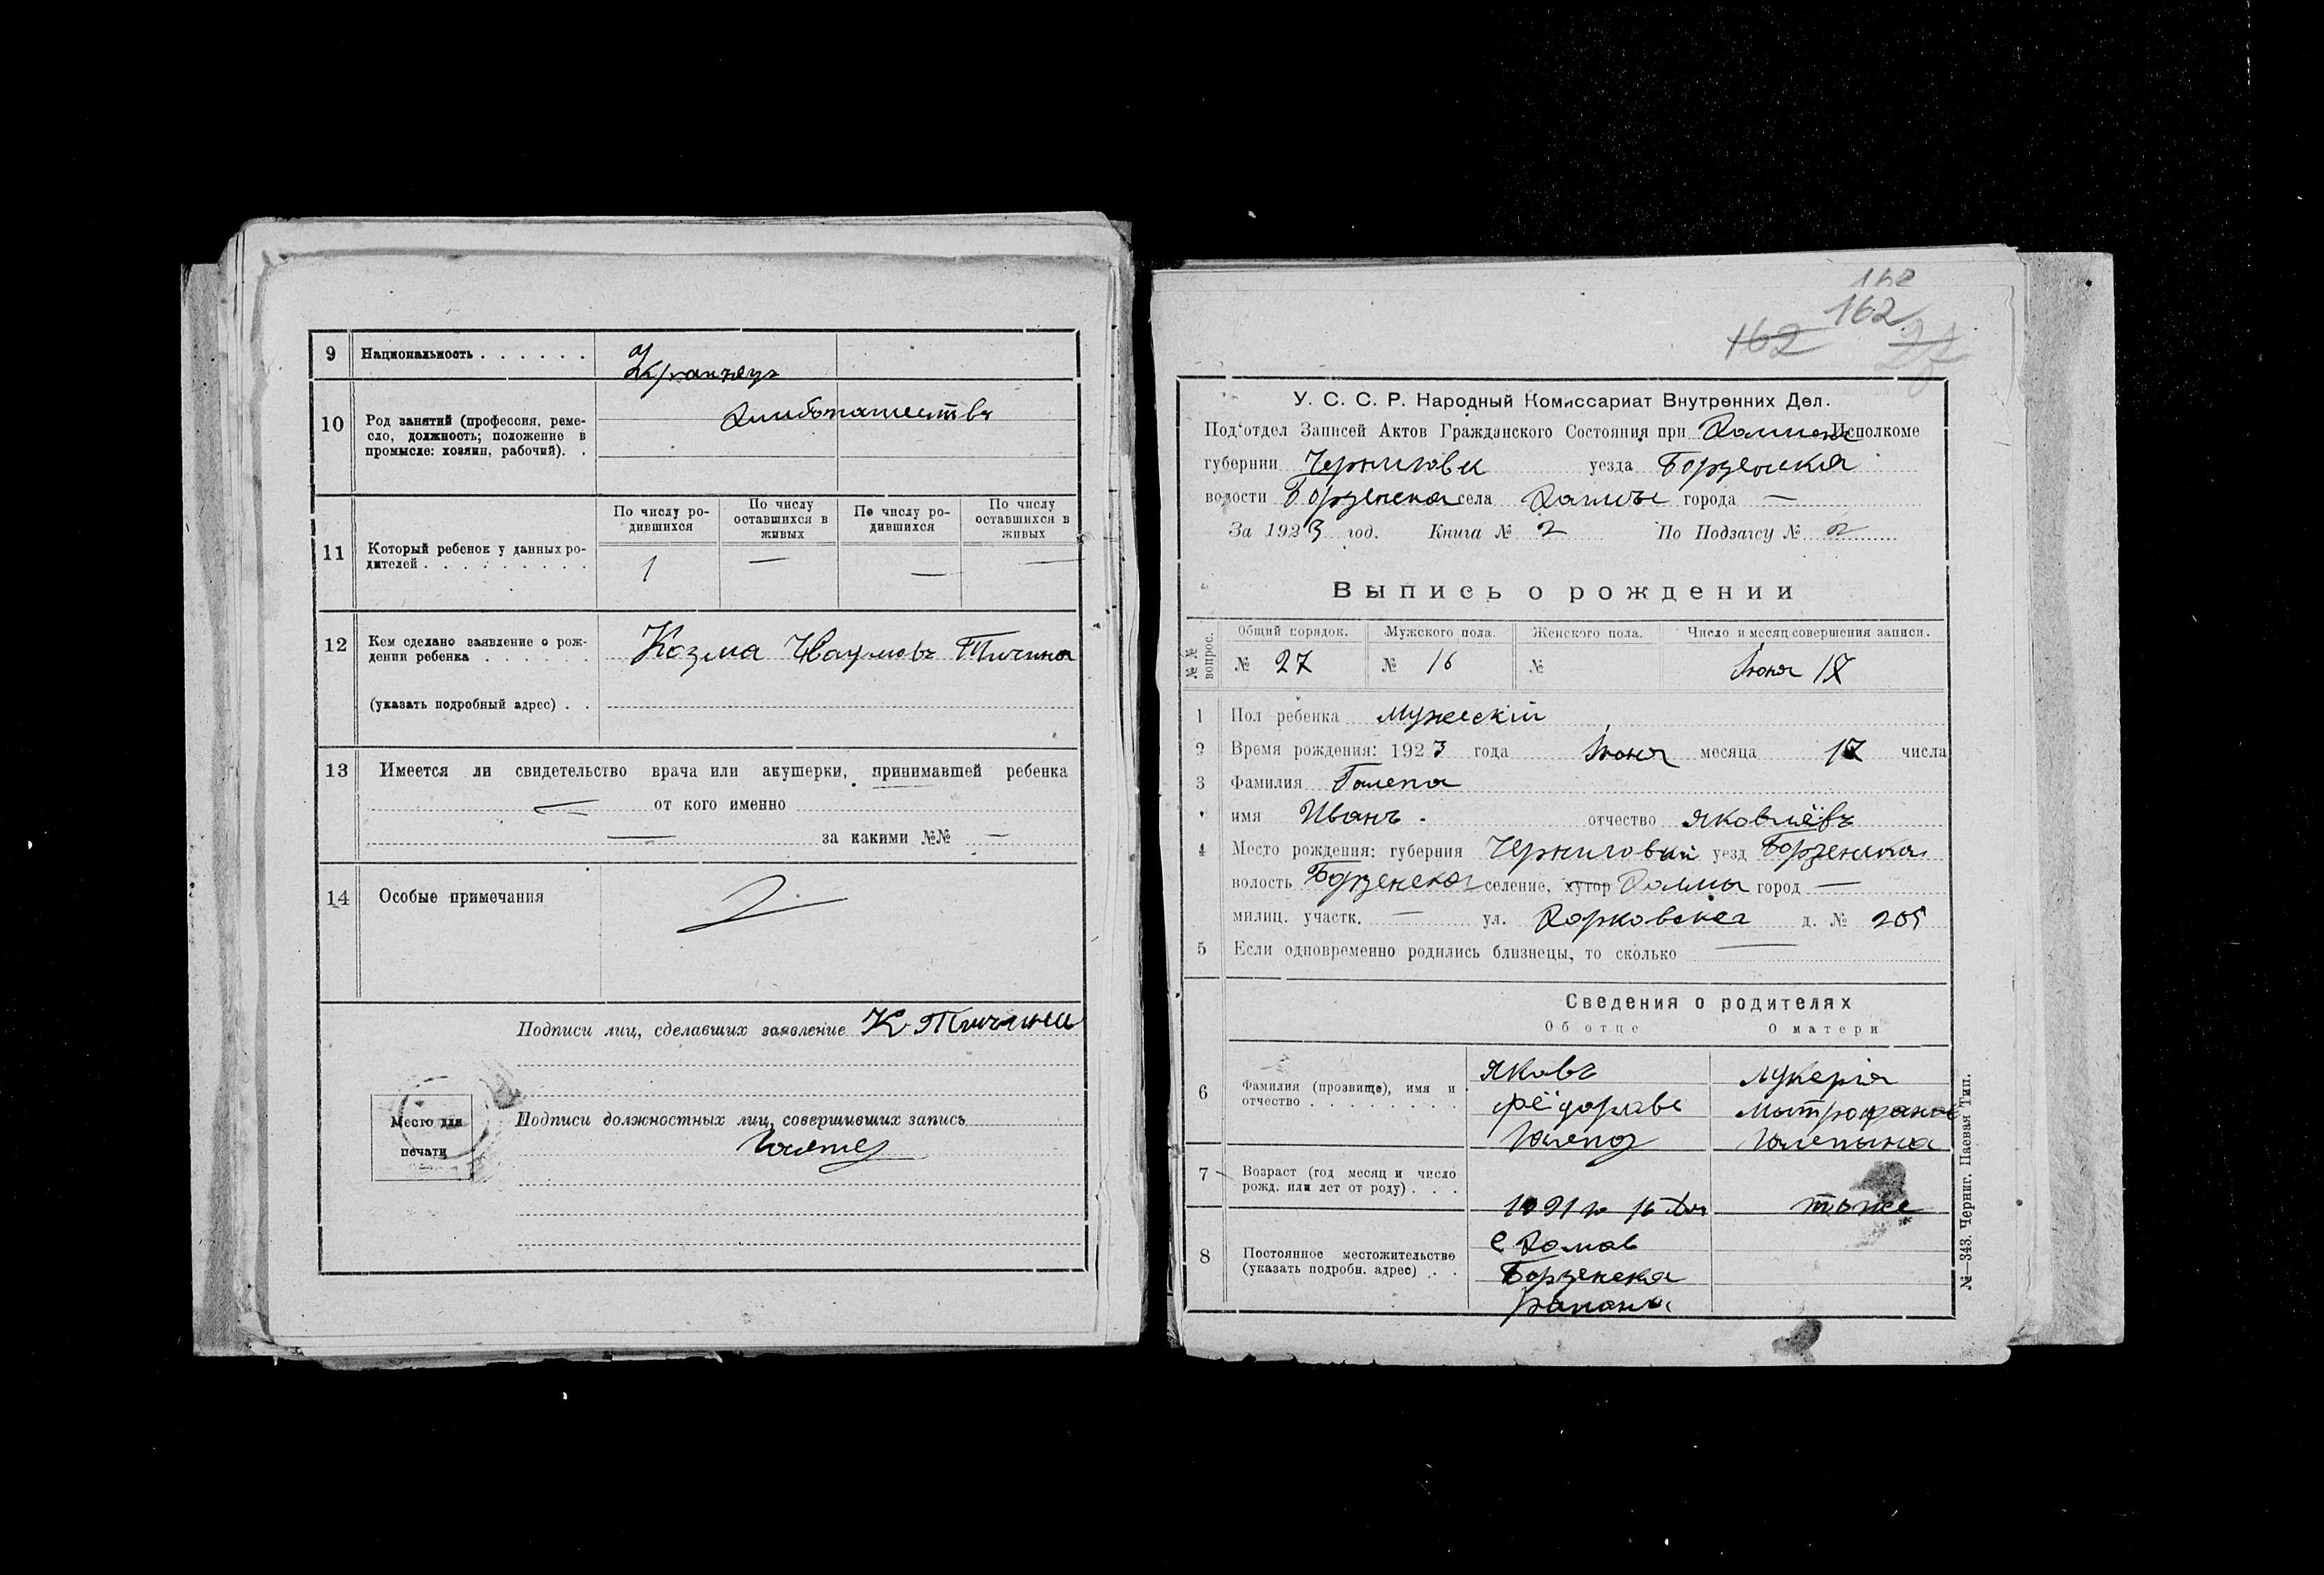 9 Национальность . . . . . .
Украинец
10 Род занятий (профессия, реме-
сло, должность; положение в
промысле: хозяин, рабочий). .
Хлиборашество
11 Который ребенок у данных ро-
дителей . . . . . . . . .
По числу ро-
дившихся
По числу
оставшихся в
живых
По числу ро-
дившихся
По числу
оставшихся в
живых
1 — — —
12 Кем сделано заявление о рож-
дении ребенка . . . . . .
Козма Наумовъ Тичина
(указать подробный адрес) . .
13 Имеется ли свидетельство врача или акушерки, принимавшей ребенка
— от кого именно
— за какими №№ —
14 Особые примечания
Подписи лиц, сделавших заявление К. Тичина
Место для
печати
Подписи должностных лиц, совершивших запись
162
162
162
27
У. С. С. Р. Народный Комиссариат Внутренних Дел.
Под'отдел Записей Актов Гражданского Состояния при Исполкоме
губернии Чернигови уезда Борзенска
волости Борзенска села города —
За 1923 год. Книга № 2 По Подзагсу № 2
Выпись о рождении
№ №
вопрос.
Общий порядок. Мужского пола. Женского пола. Число и месяц совершения записи.
№ 27 № 16 № Июня 17
1 Пол ребенка Мужескій
2 Время рождения: 1923 года Июня месяца 17 числа
3 Фамилия Галепа
имя Иванъ. отчество Яковлёвъ
4 Место рождения: губерния Чернигови уезд Борзенска
волость Борзенска селение, хутор город —
милиц. участк. — ул. д. № 205
5 Если одновременно родились близнецы, то сколько —
Сведения о родителях
Об отце О матери
6 Фамилия (прозвище), имя и
отчество . . . . . . . . .
Яковъ
Фёдоровъ
Галепа
Лукерія
Митрофанов
Галепина
7 Возраст (год месяц и число
рожд. или лет от роду) . . .
тоже
8 Постоянное местожительство
(указать подробн. адрес) . . .
Борзенска
района
№—343. Черниг. Паевая Тип.